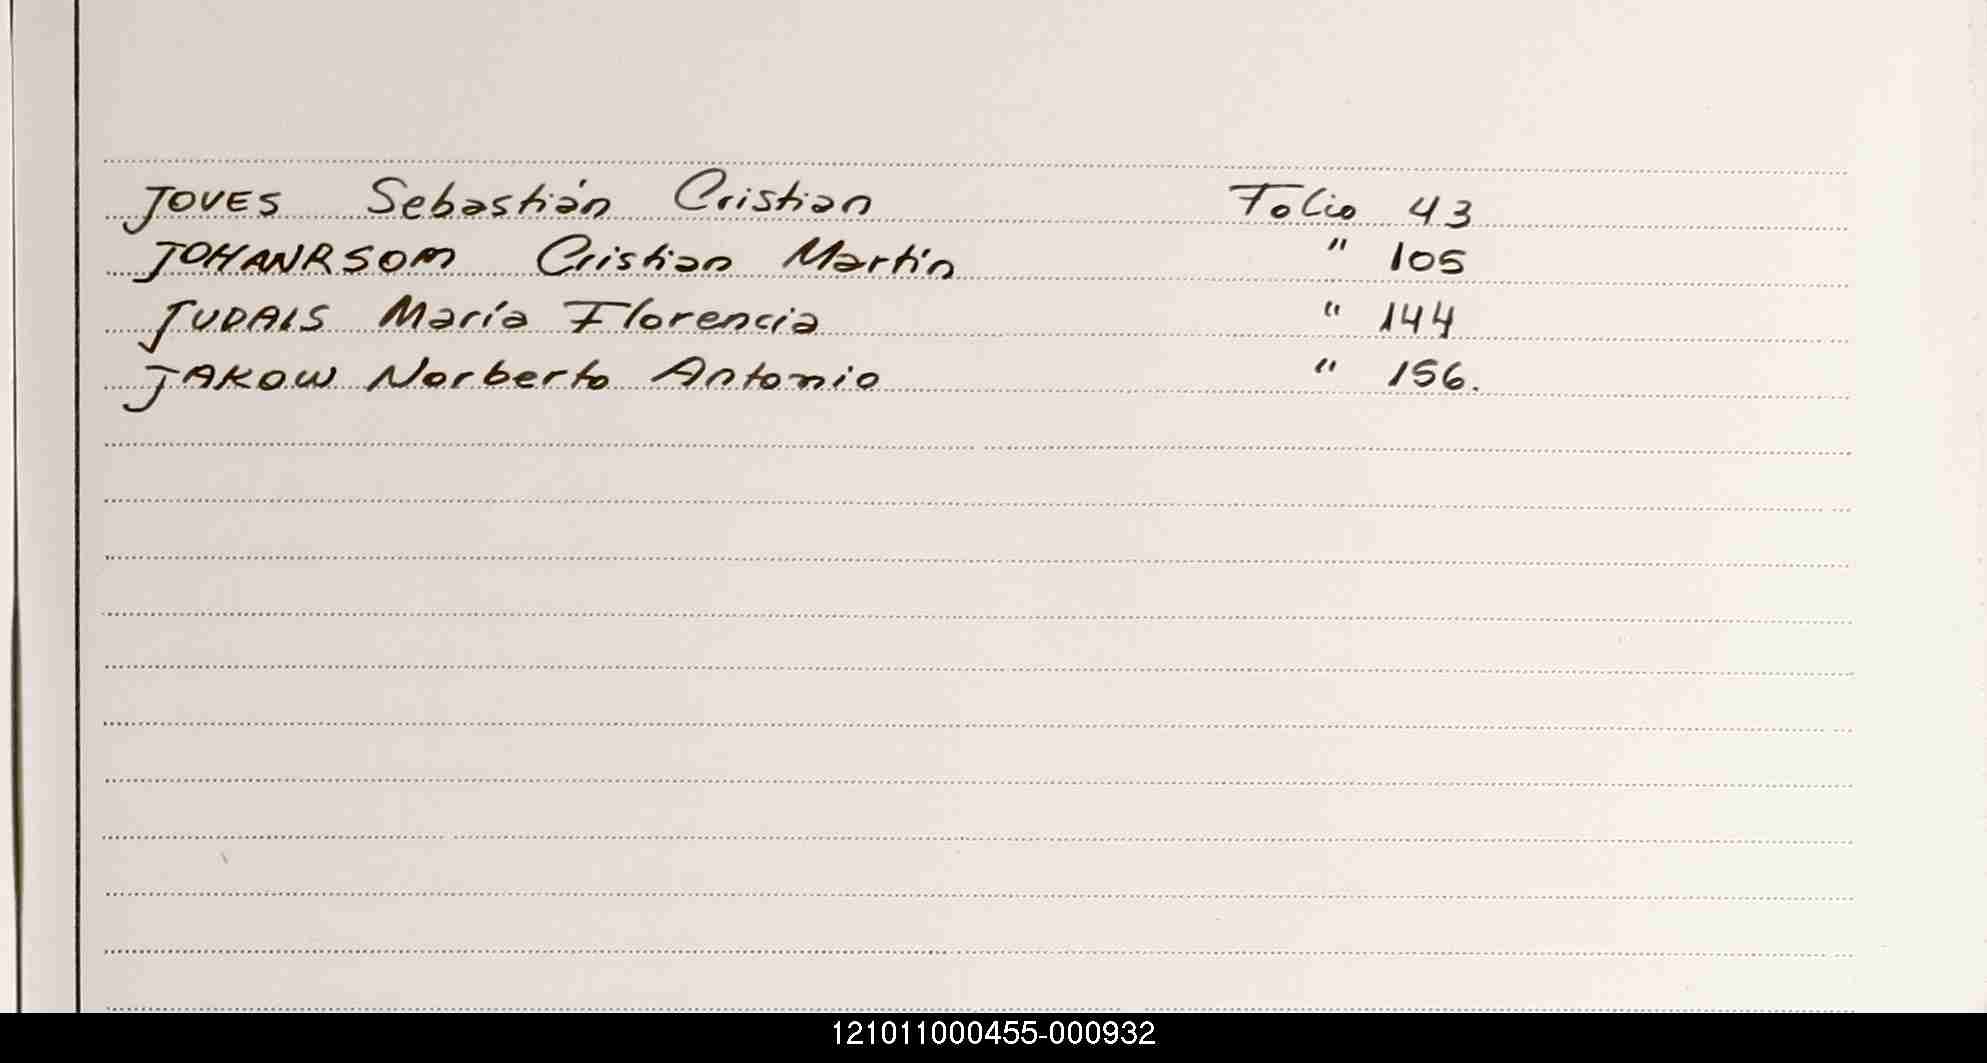 JOVES Sebastián Cristian Folio 43
JOHANRSOM Cristian Martín " 105
JUDAIS María Florencia " 144
JAKOW Norberto Antonio " 156.
121011000455-000932